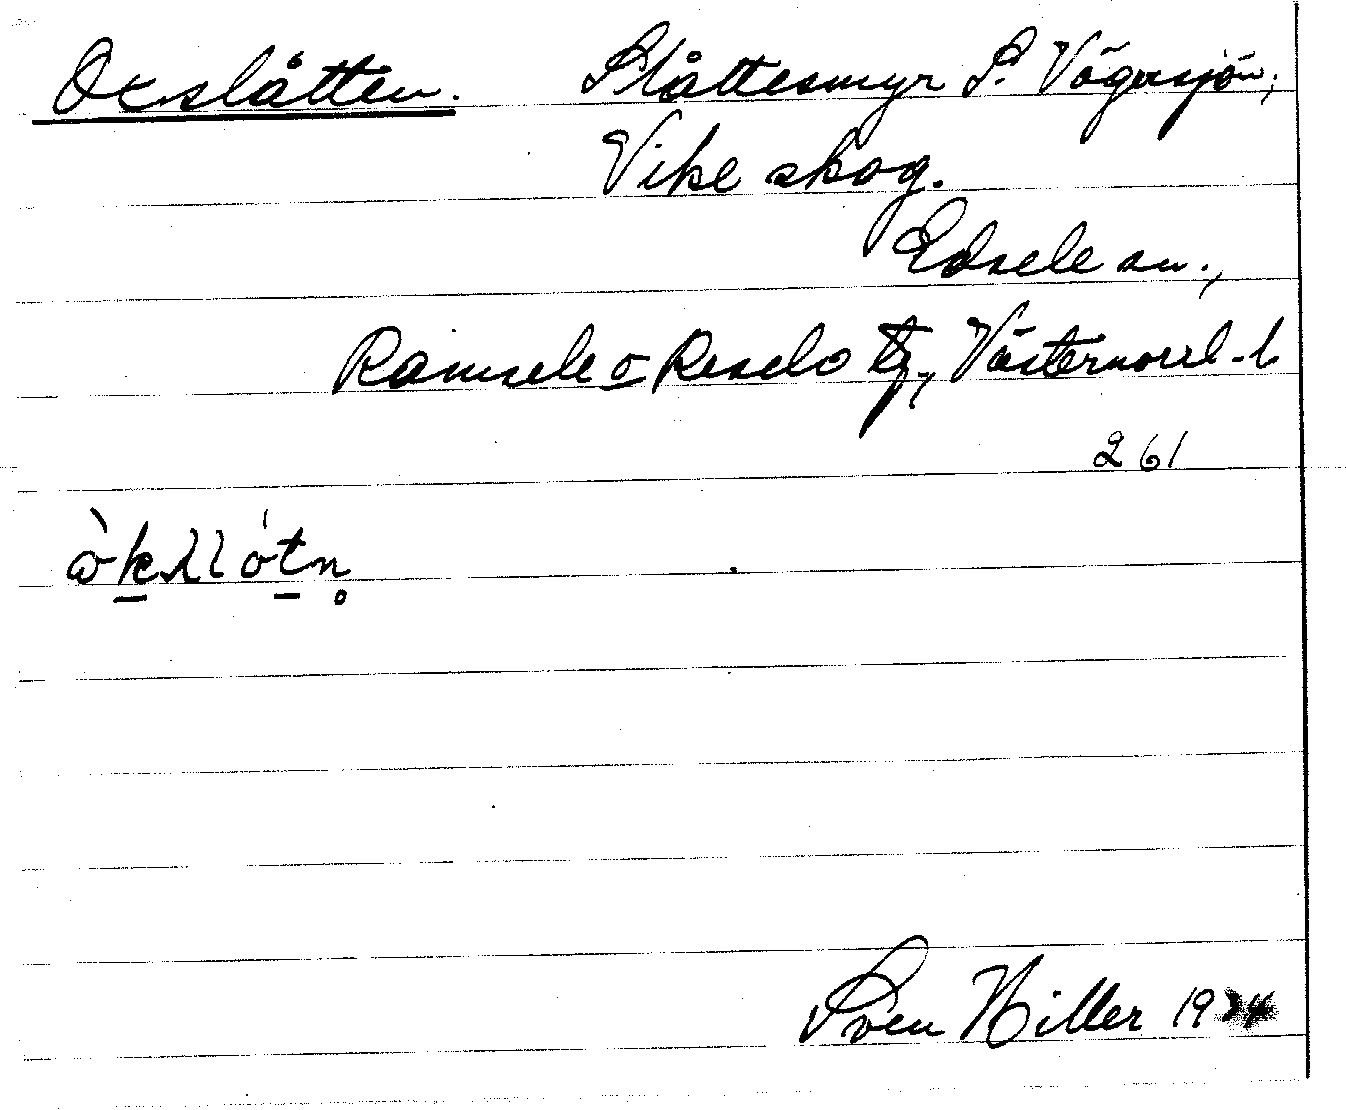 Oxslåtten. Slåttesmyr S. Vågesjön,
Vike skog.
Edsele sn.,
Ramsele o Resele tg., Västernorrl. l
261
Sven Hiller 1934